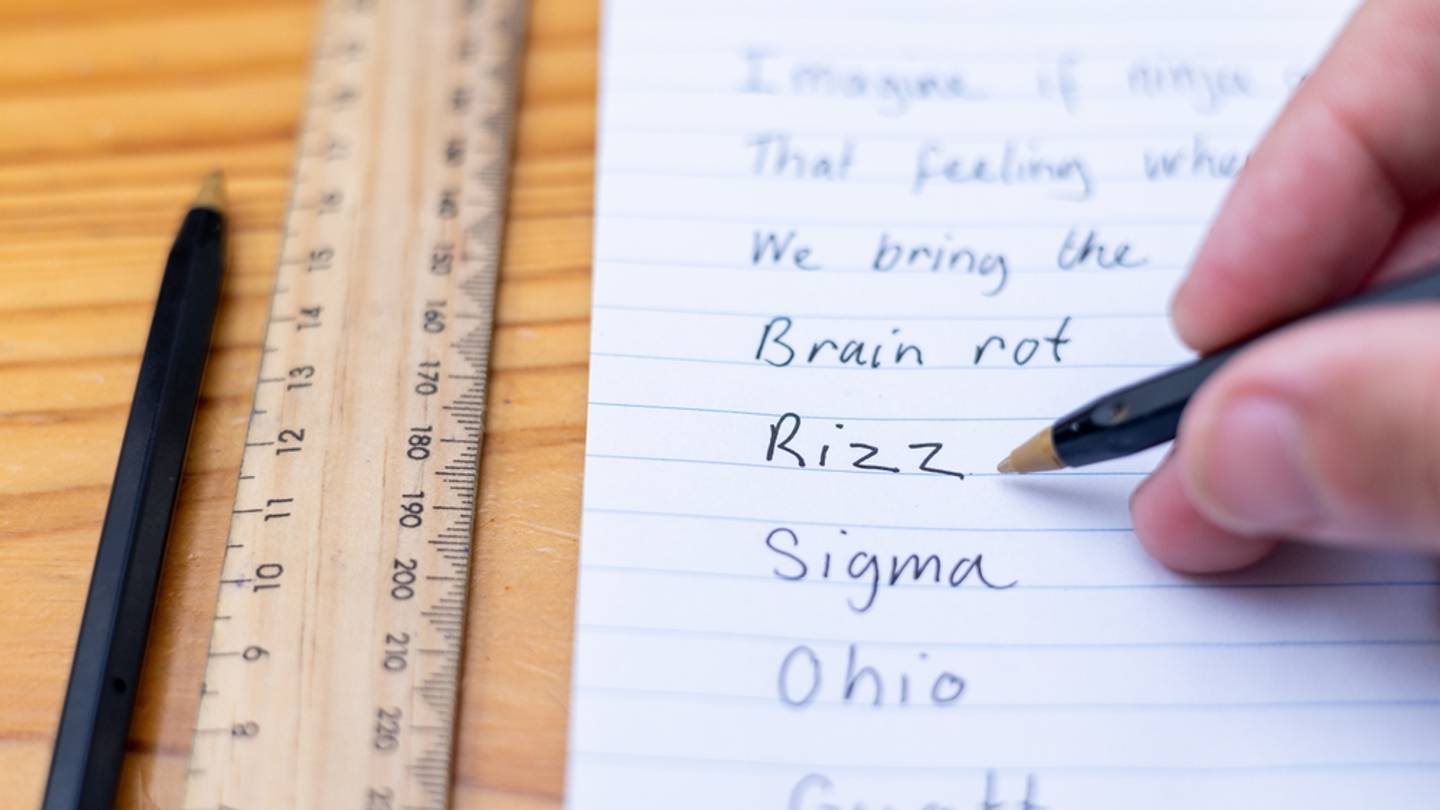 Imagine if ninja
That feeling whe
We bring the
Brain rot
Rizz
Sigma
Ohio
17
16
15
14
13
12
11
10
9
8
150
160
170
180
190
200
210
220